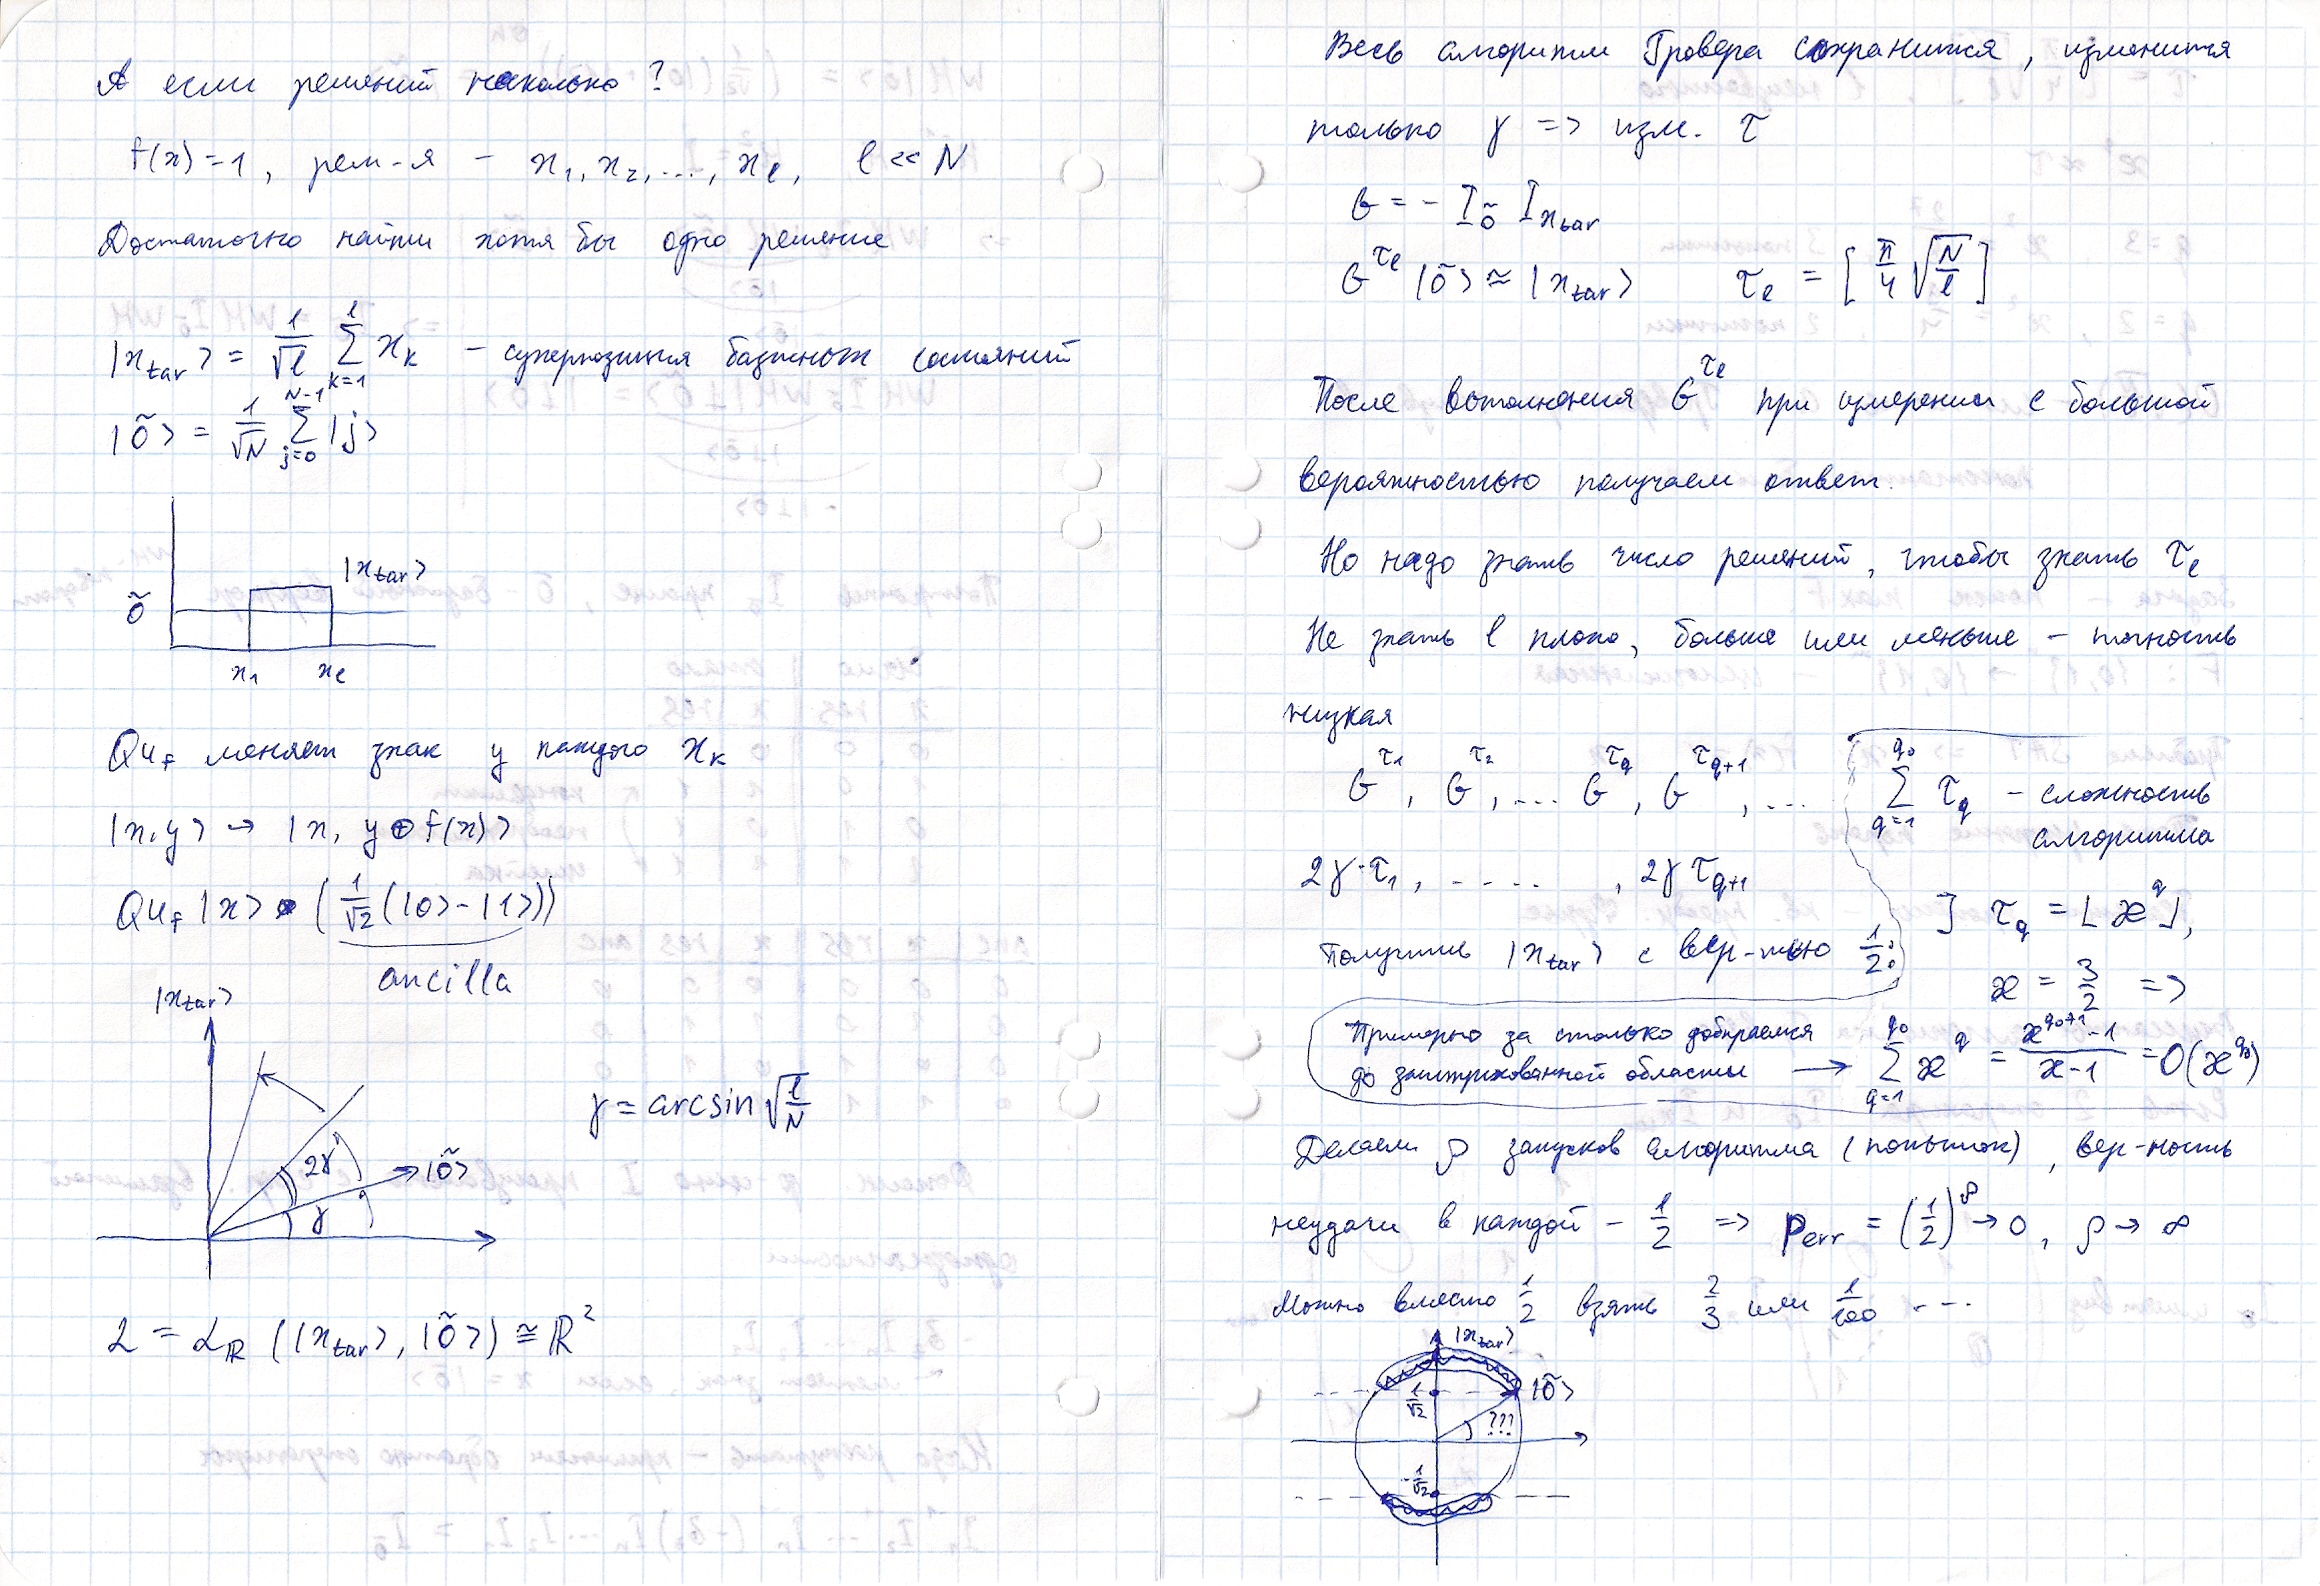 А если решений несколько?
f(x)=1, реш-я – x₁, x₂, ..., x_l, l << N
Достаточно найти хотя бы одно решение
|x_tar> = 1/√l ∑_{k=1}^{l} x_k – суперпозиция базисных состояний
|õ> = 1/√N ∑_{j=0}^{N-1} |j>
|x_tar>
õ
x₁ x_l
Qu_f меняет знак у каждого x_k
|x, y> → |x, y ⊕ f(x)>
Qu_f |x> (1/√2 (|0> - |1>))
ancilla
|x_tar>
γ = arcsin √(l/N)
2γ |õ>
γ
L = L_ℝ (|x_tar>, |õ>) ≅ ℝ²
Весь алгоритм Гровера сохранится, изменится
только γ => изм. τ
G = - I_õ I_{x_tar}
G^{τ_l} |õ> ≈ |x_tar> τ_l = [π/4 √(N/l)]
После выполнения G^{τ_l} при измерении с большой
вероятностью получаем ответ.
Но надо знать число решений, чтобы знать τ_l
Не знать l плохо, больше или меньше – точность
низкая
G^{τ₁}, G^{τ₂}, ... G^{τ_q}, G^{τ_{q+1}}, ... ∑_{q=1}^{q₀} τ_q – сложность
алгоритма
2γ·τ₁, ....., 2γ τ_{q+1}
] τ_q = ⌊æ^q⌋,
Получить |x_tar> с вер-тью 1/2:
æ = 3/2 =>
Примерно за столько добираемся
до заштрихованной области → ∑_{q=1}^{q₀} æ^q = (æ^{q₀+1} - 1)/(æ - 1) = O(æ^{q₀})
Делаем ρ запусков алгоритма (попыток), вер-ность
неудачи в каждой – 1/2 => p_err = (1/2)^ρ → 0, ρ → ∞
Можно вместо 1/2 взять 2/3 или 1/100 ...
|x_tar>
1/√2 |õ>
???
-1/√2